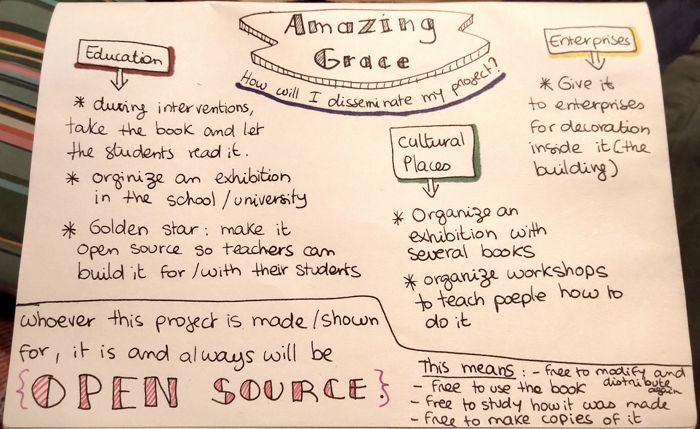 Amazing
Grace
How will I disseminate my project?
Education
* during interventions,
take the book and let
the students read it.
* orginize an exhibition
in the school/university
* Golden star: make it
open source so teachers can
build it for/with their students
Cultural
Places
* Organize an
exhibition with
several books
* organize workshops
to teach poeple how to
do it
Enterprises
* Give it
to enterprises
for decoration
inside it (the
building)
whoever this project is made/shown
for, it is and always will be
{OPEN SOURCE}
This means: - free to modify and
distribute
again
- free to use the book
- free to study how it was made
- free to make copies of it